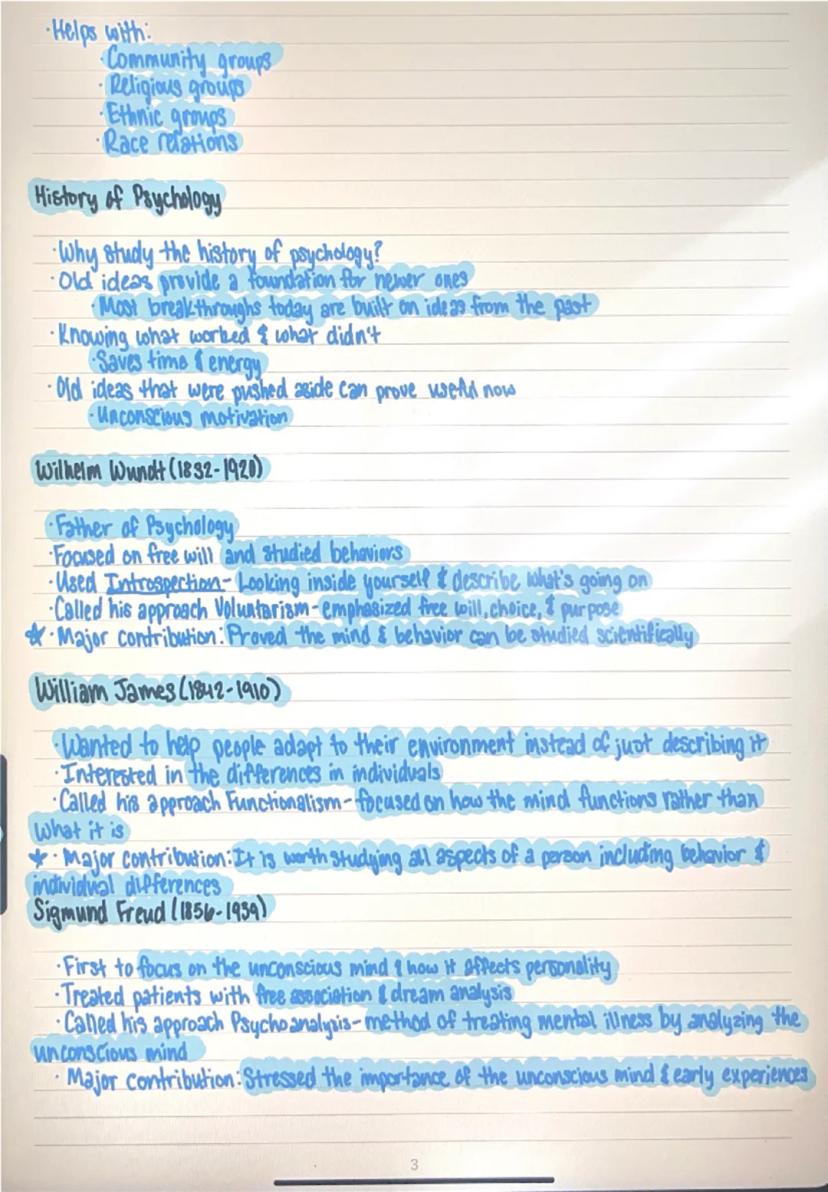 ·Helps with:
·Community groups
·Religious groups
·Ethnic groups
·Race relations
History of Psychology
·Why study the history of psychology?
·Old ideas provide a foundation for newer ones
·Most breakthroughs today are built on ideas from the past
·Knowing what worked & what didn't
·Saves time & energy
·Old ideas that were pushed aside can prove useful now
·Unconscious motivation
Wilhelm Wundt (1832-1920)
·Father of Psychology
·Focused on free will and studied behaviors
·Used Introspection- Looking inside yourself & describe what's going on
·Called his approach Voluntarism-emphasized free will, choice, & purpose
☆·Major contribution: Proved the mind & behavior can be studied scientifically
William James (1842-1910)
·Wanted to help people adapt to their environment instead of just describing it
·Interested in the differences in individuals
·Called his approach Functionalism-focused on how the mind functions rather than
what it is
★·Major contribution: It is worth studying all aspects of a person including behavior &
individual differences
Sigmund Freud (1856-1939)
·First to focus on the unconscious mind & how it affects personality
·Treated patients with free association & dream analysis
·Called his approach Psychoanalysis-method of treating mental illness by analyzing the
unconscious mind
·Major contribution: Stressed the importance of the unconscious mind & early experiences
3